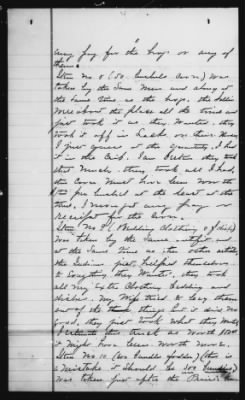 any pay for the hogs or any of
them.
Item No 8 (50. bushels Corn) was
taken by the same men and along at
the same time as the hogs, the soldiers
were about the place all the time and
just took it as they wanted, they
took it off in sacks on their horses
I just guess at the quantity, I had
it in the Crib. I am certain they took
that much. they took all I had,
the Corn must have been worth
per bushel at the least at the
time, I never got any pay or
receipt for the Corn.
Item No 9 (Bedding Clothing & dishes)
was taken by the same
at the same time as the others
the Indians just helped themselves
to everything they wanted, they took
all my Extra Clothing bedding and
dishes. My Wife tried to beg them
out of the things but it did no
good, they just took what they wanted
I estimate this truck as worth
it might have been worth more.
Item No 10. (200 bundles fodder) (this is
a mistake it should be 500 bundles)
was taken just after the Prairie